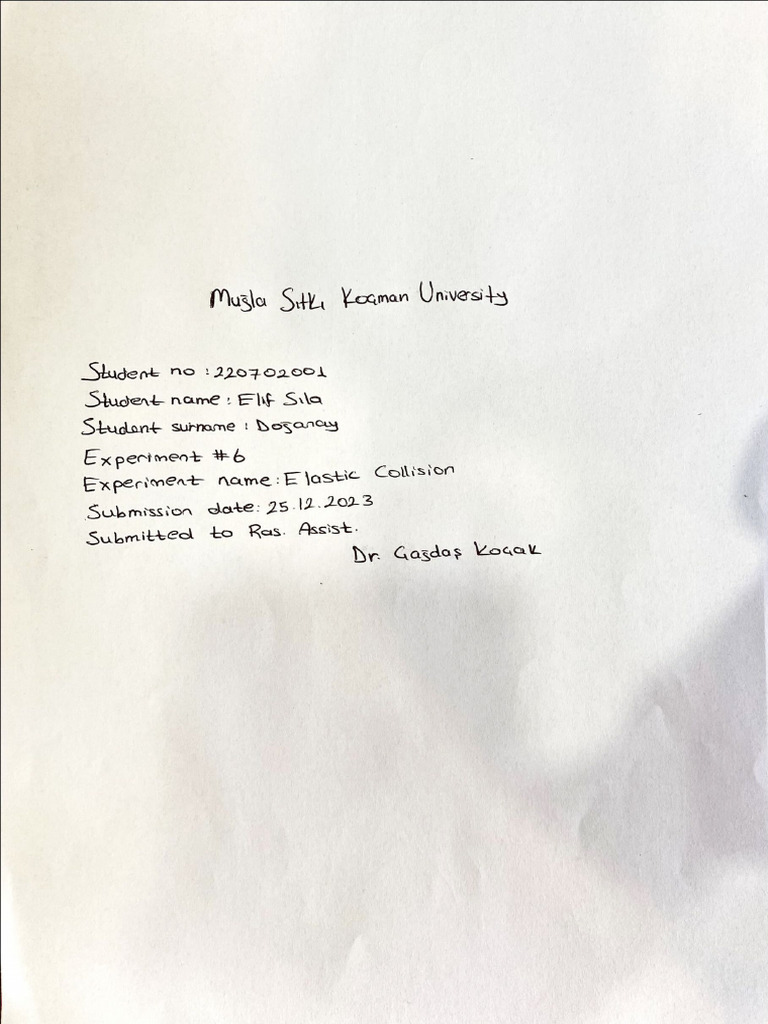 Muğla Sıtkı Koçman University
Student no : 220702001
Student name : Elif Sıla
Student surname : Doğanay
Experiment #6
Experiment name : Elastic Collision
Submission date : 25.12.2023
Submitted to Ras. Assist.
Dr. Çağdaş Koçak